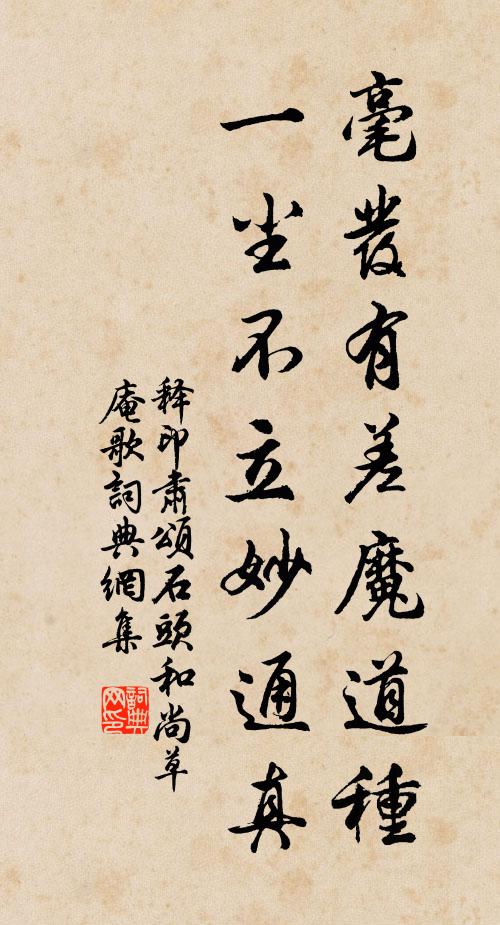 毫發有差魔道種
一尘不立妙通真
释印肅頌石頭和尚草
庵歌詞典網集
詞典网印